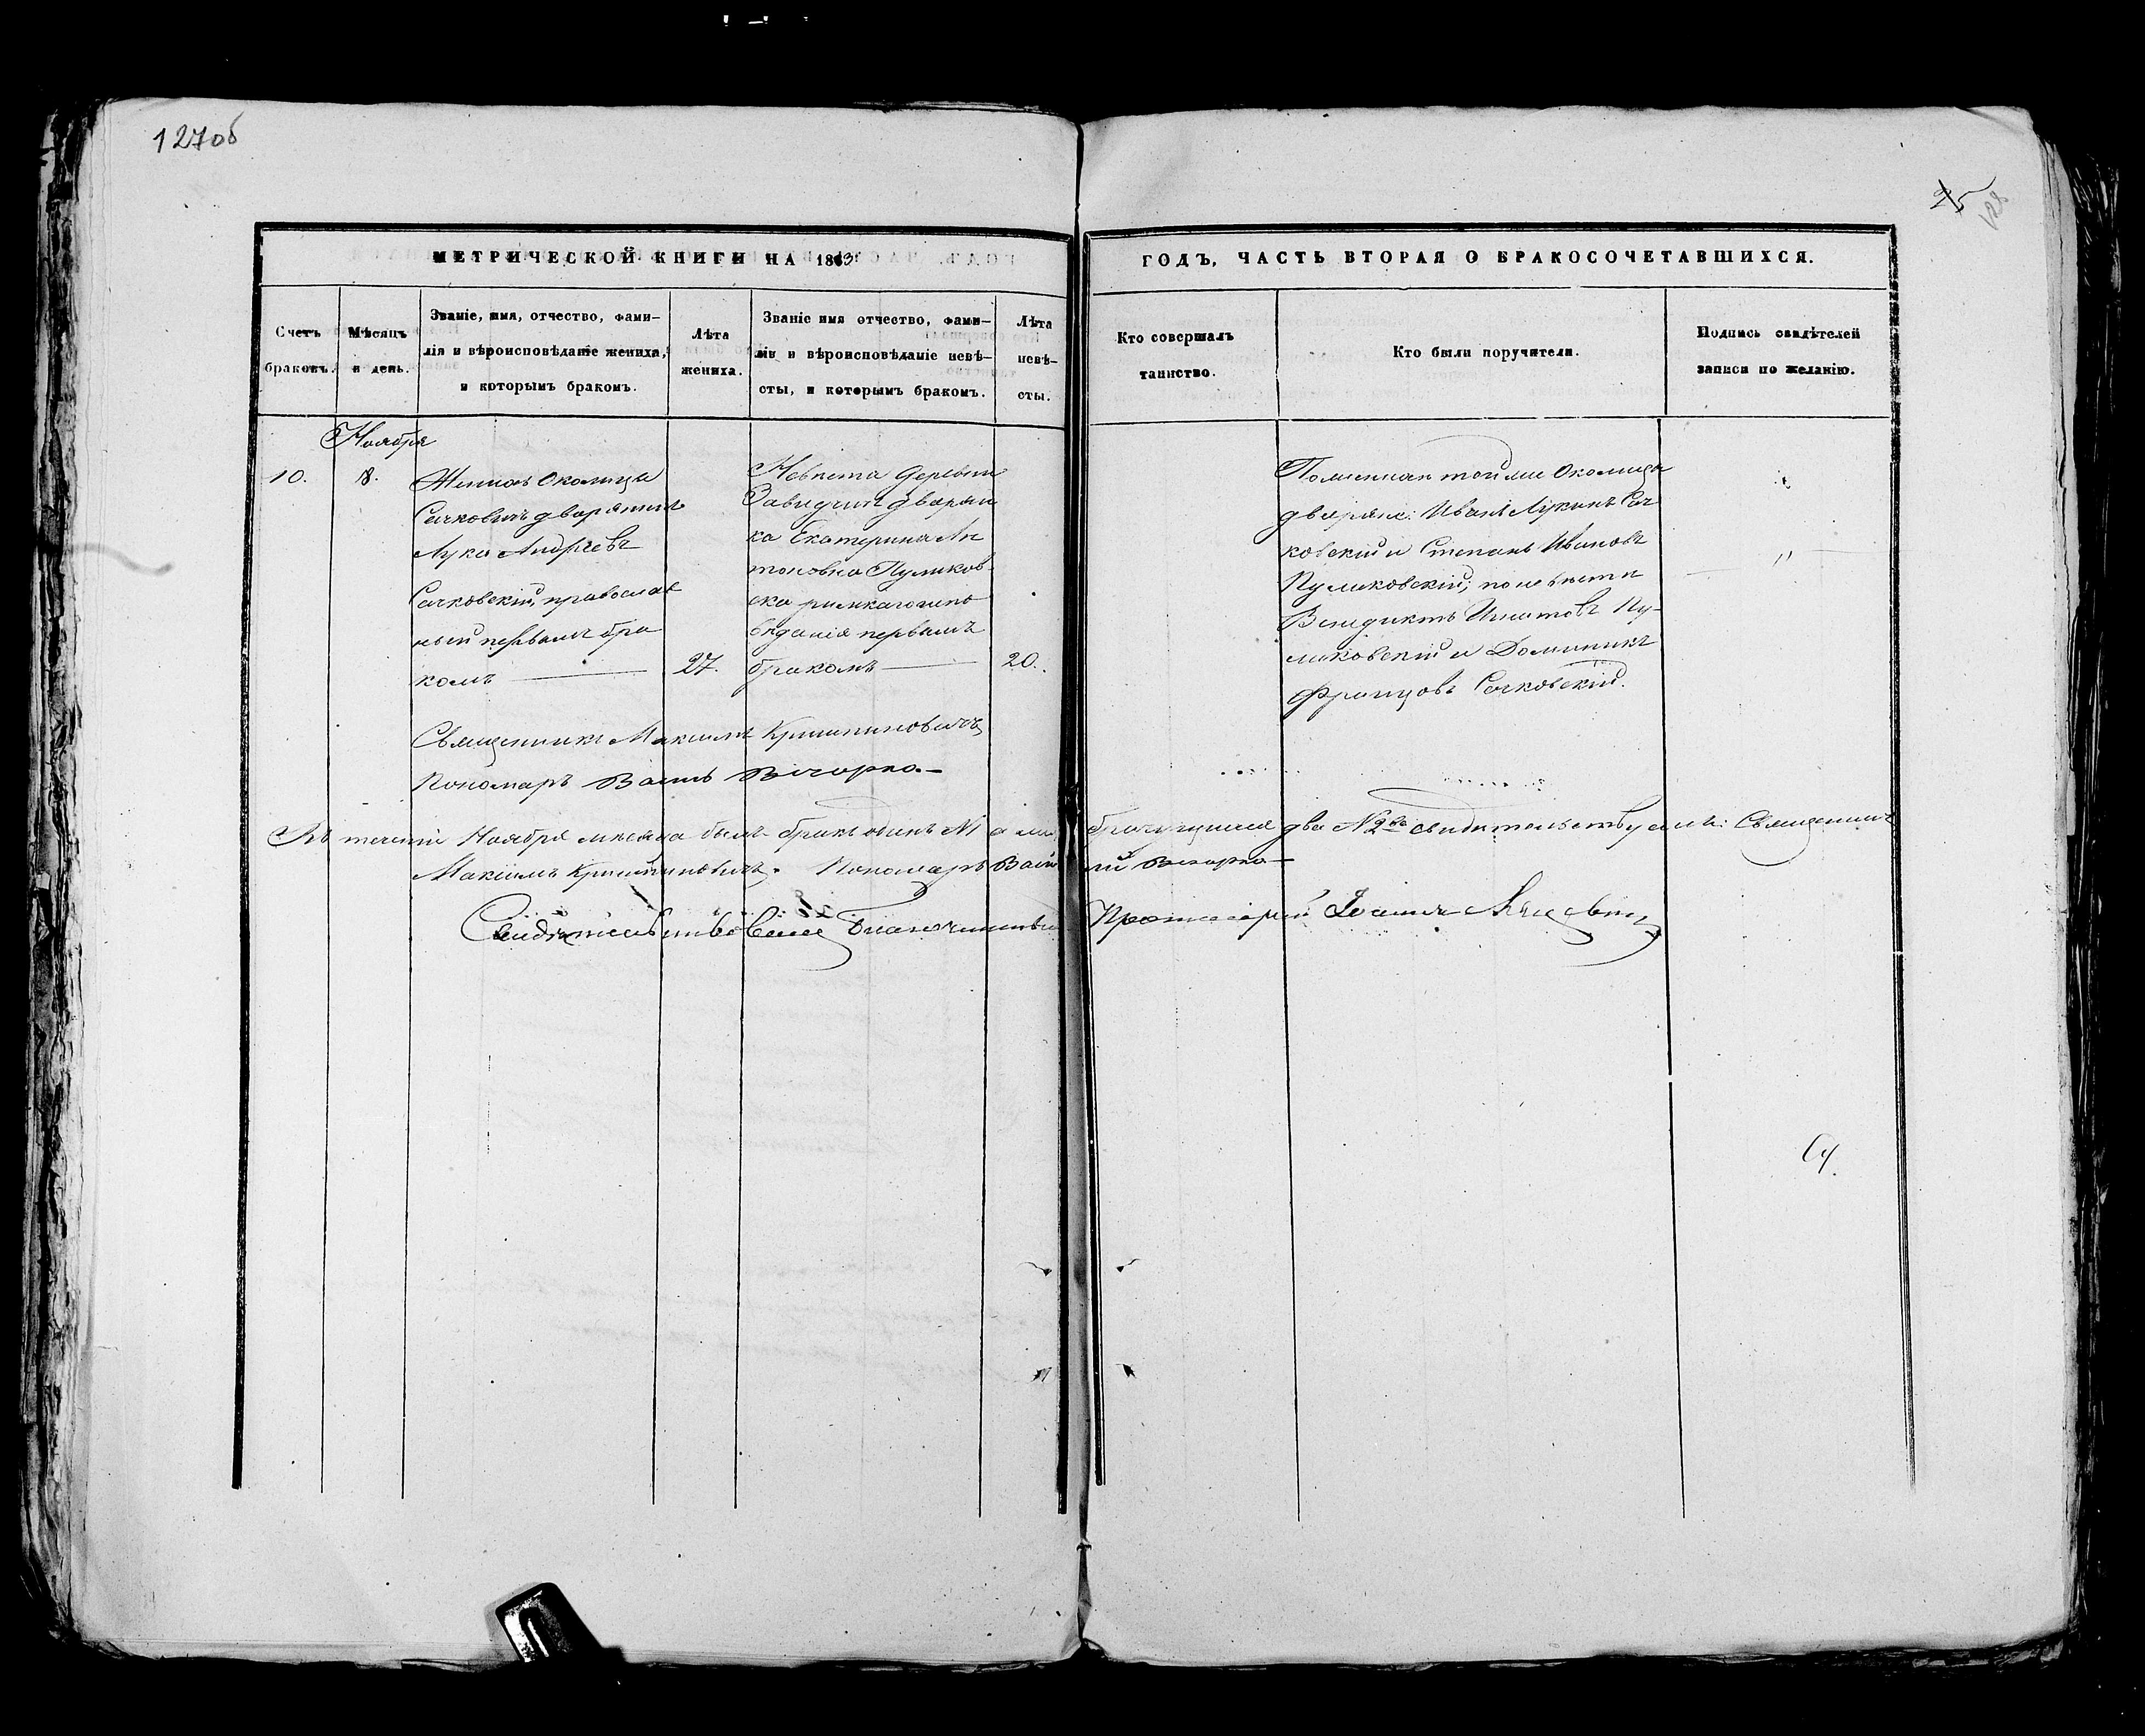 127об
25
128
МЕТРИЧЕСКОЙ КНИГИ НА 1863
ГОДЪ, ЧАСТЬ ВТОРАЯ О БРАКОСОЧЕТАВШИХСЯ.
Счетъ браковъ.
Мѣсяцъ и день.
Званіе, имя, отчество, фами-
лія и вѣроисповѣданіе жениха,
и которымъ бракомъ.
Лѣта
жениха.
Званіе имя отчество, фами-
лія и вѣроисповѣданіе невѣ-
сты, и которымъ бракомъ.
Лѣта
невѣ-
сты.
Кто совершалъ
таинство.
Кто были поручители.
Подпись свидѣтелей
записи по желанію.
Ноября
10.
8.
Женихъ Околицы
Сачковичъ дворянинъ
Лука Андреевъ
Сачковскій, православ
ный первымъ бра
комъ
27.
Невѣста деревни
дворян
ка Екатерина Ан
тоновна Пуликов
ска римскаго испо
вѣданія первымъ
бракомъ
20.
По женихѣ той же Околицы
дворяне: Иванъ Лукинъ Сач
ковскій и Степанъ Ивановъ
Пуликовскій; по невѣстѣ
Венедиктъ Игнатовъ Пу-
ликовскій и Доминикъ
Францовъ Сачковскій.
"
Священникъ Максимъ
Пономарь
Въ теченіи Ноября мѣсяца былъ бракъ одинъ №1 а
два №2 свидѣтельствуемъ: Священникъ
Максимъ Пономарь
Благочинный Протоіерей Іоаннъ